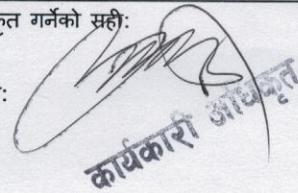 कृत गर्नेको सही:
:
कार्यकारी अधिकृत